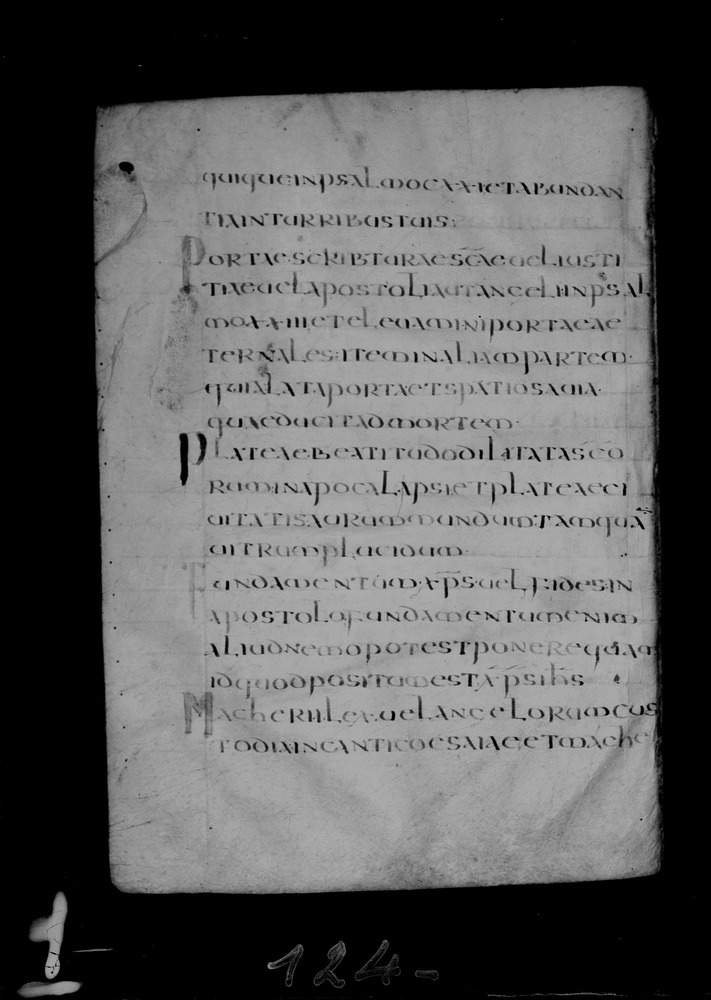 quiqueinpsalmocxxietabundan
tiainturribustuis;
Portaescribturaescāeueliusti
tiaeuelapostoliautangeliinpsal
moxxiiieteleuaminiportaeae
ternales·iteminaliampartem·
quialataportaetspatiosauia·
quaeducitadmortem·
Plateaebeatitudodilitatascō
ruminapocalapsietplateaeci
uitatisaurummundumtamquā
uitrumplucidum·
Fundamentumxp̄s·uelfidesin
apostolofundamentumenim
aliudnemopotestponerequam
idquodpositumestxp̄sih̄s
Macheriilex·uelangelorumcus
todiaincanticoesaiaeetmache
124-